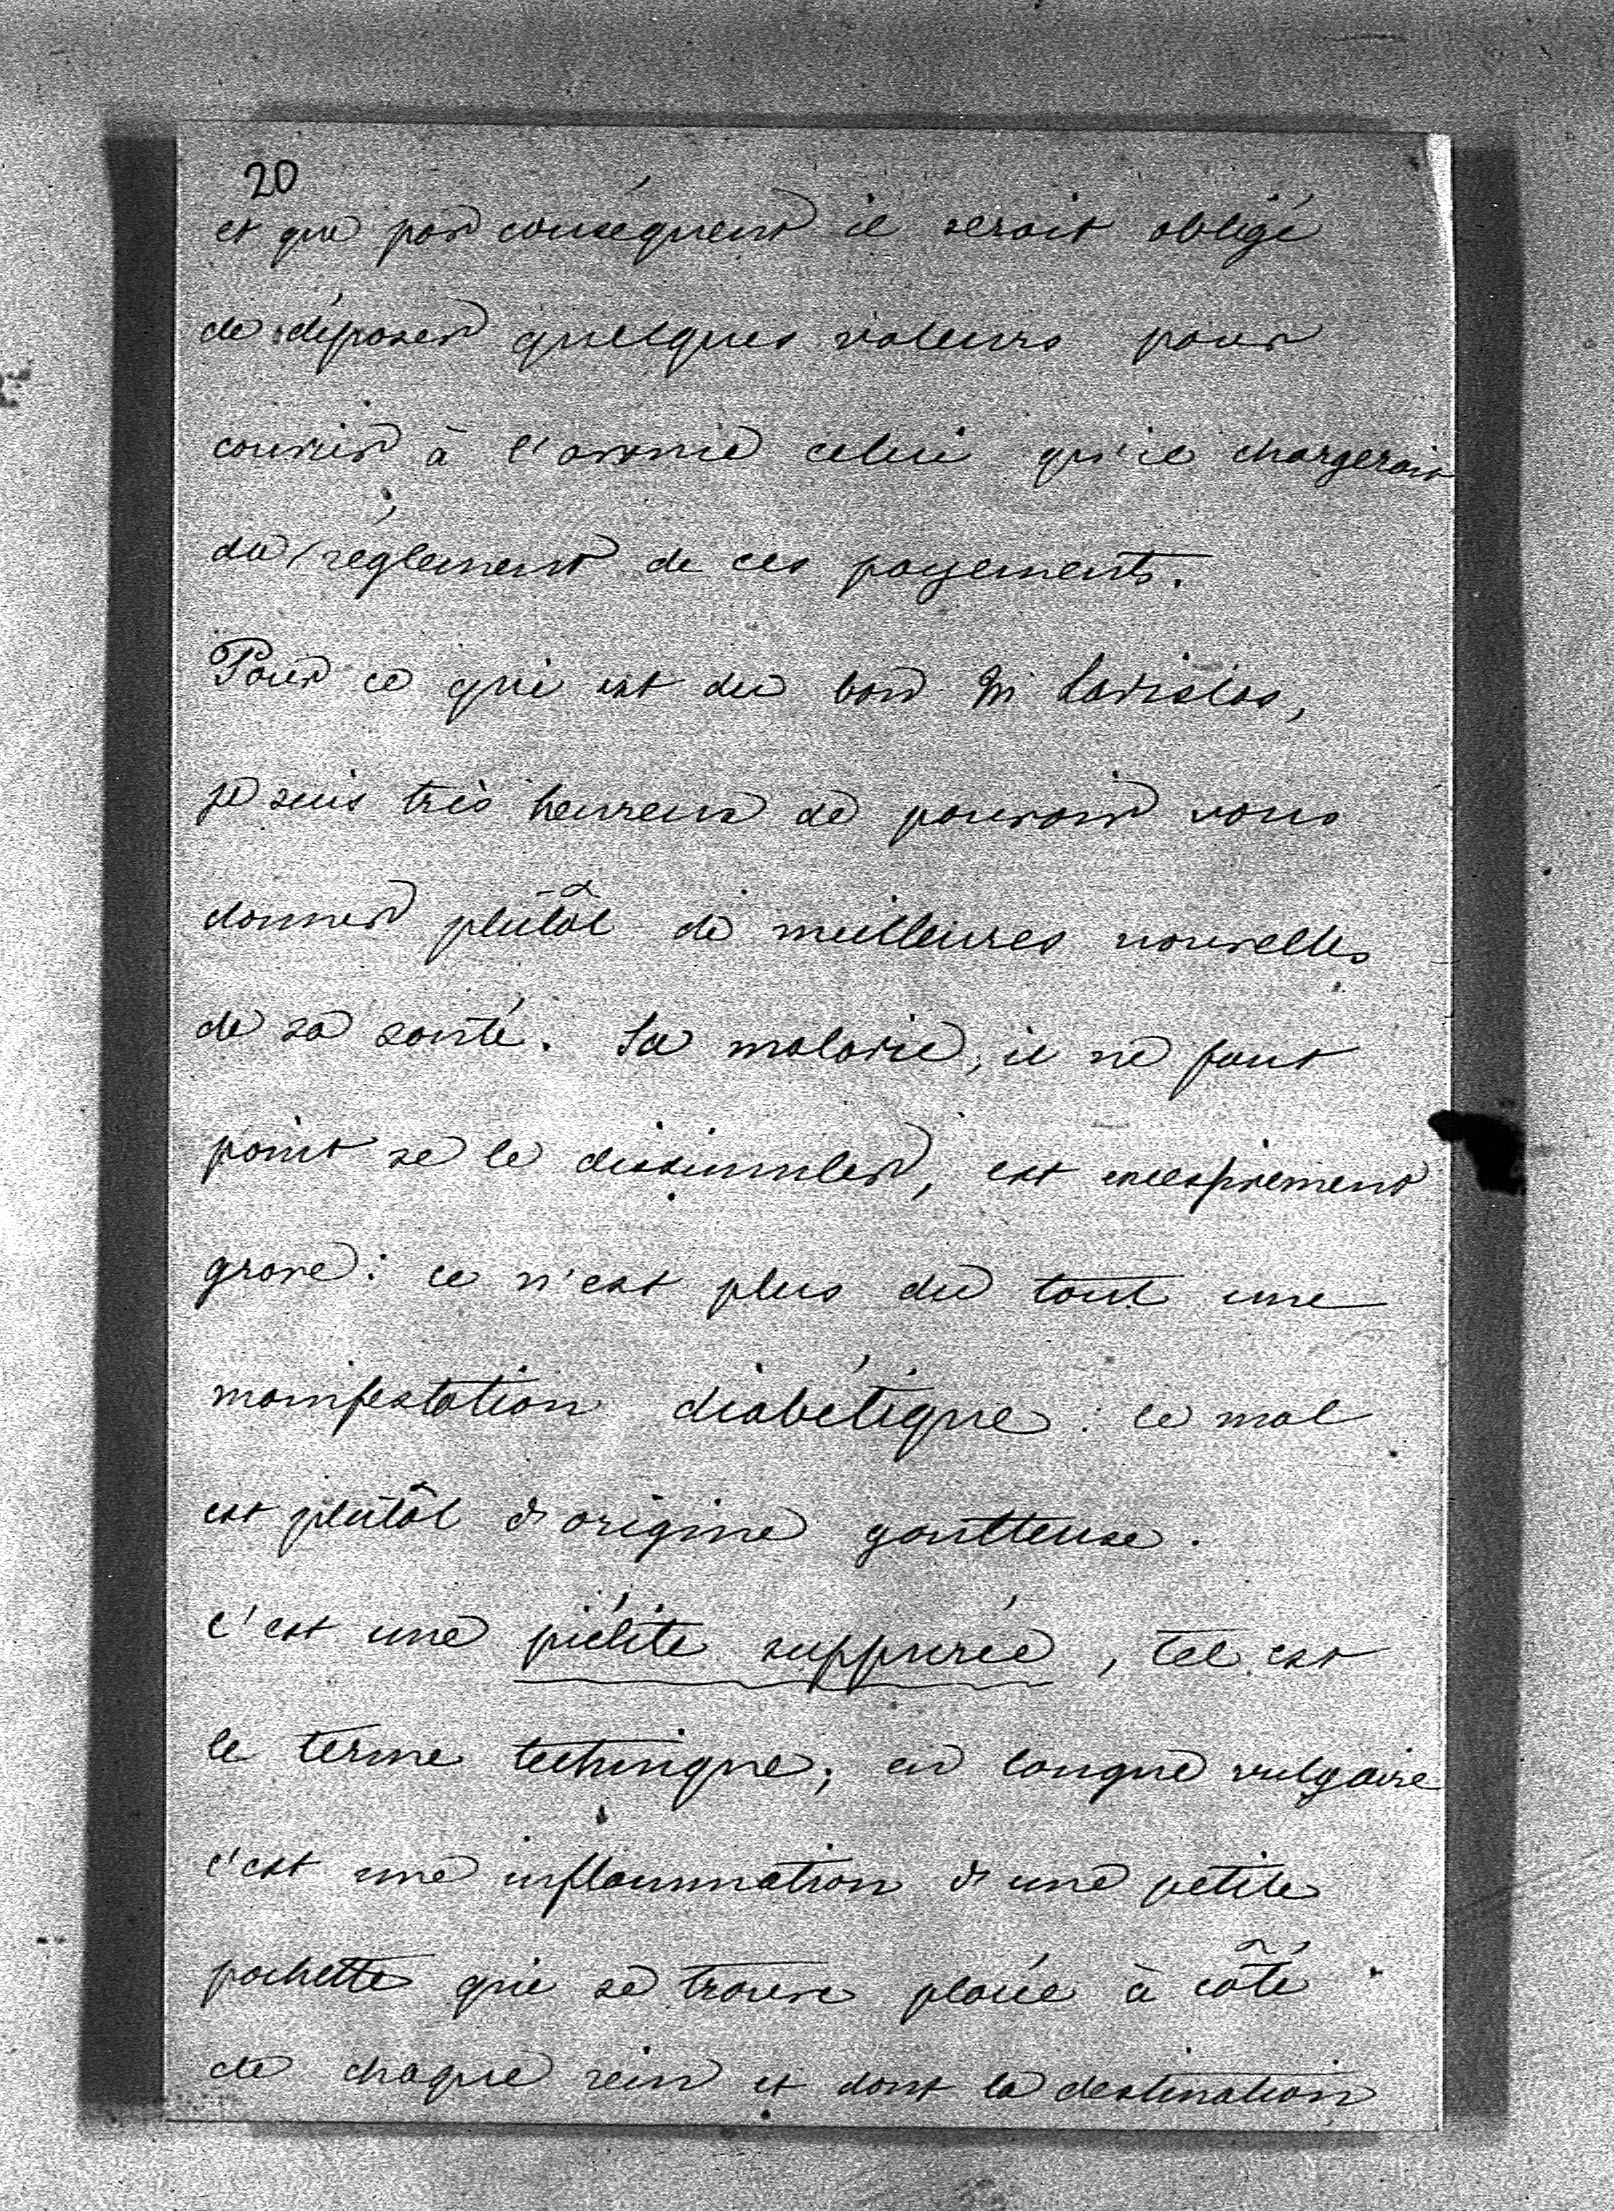 20
et que par conséquent il serait obligé
de déposer quelques valeurs pour
couvrir à l'avance celui qu'il chargerait
du règlement de ces payements.
Pour ce qui est du bon M Ladislas,
je suis très heureux de pouvoir vous
donner plûtôt de meilleures nouvelles
de sa santé. Sa maladie, il ne faut
point se le dissimuler, est excessivement
grave: ce n'est plus du tout une
manifestation diabétique: le mal
est plutôt d'origine goutteuse.
c'est une piélite suppurée, tel est
le terme technique; en langue vulgaire
c'est une inflammation d'une petite
pochette qui se trouve placée à côté
de chaque rein et dont la destination